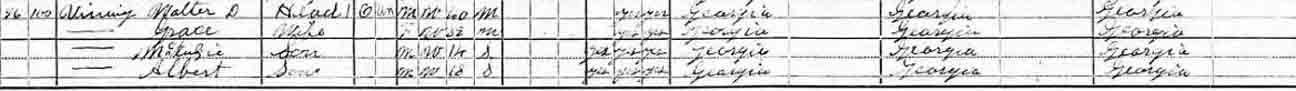 86 100 Vinning Walter D Head 1 O M W 60 M yes yes Georgia Georgia Georgia
— Grace Wife F W 52 M yes yes Georgia Georgia Georgia
— Son M W S yes yes yes Georgia Georgia Georgia
— Albert Son M W S yes yes yes Georgia Georgia Georgia